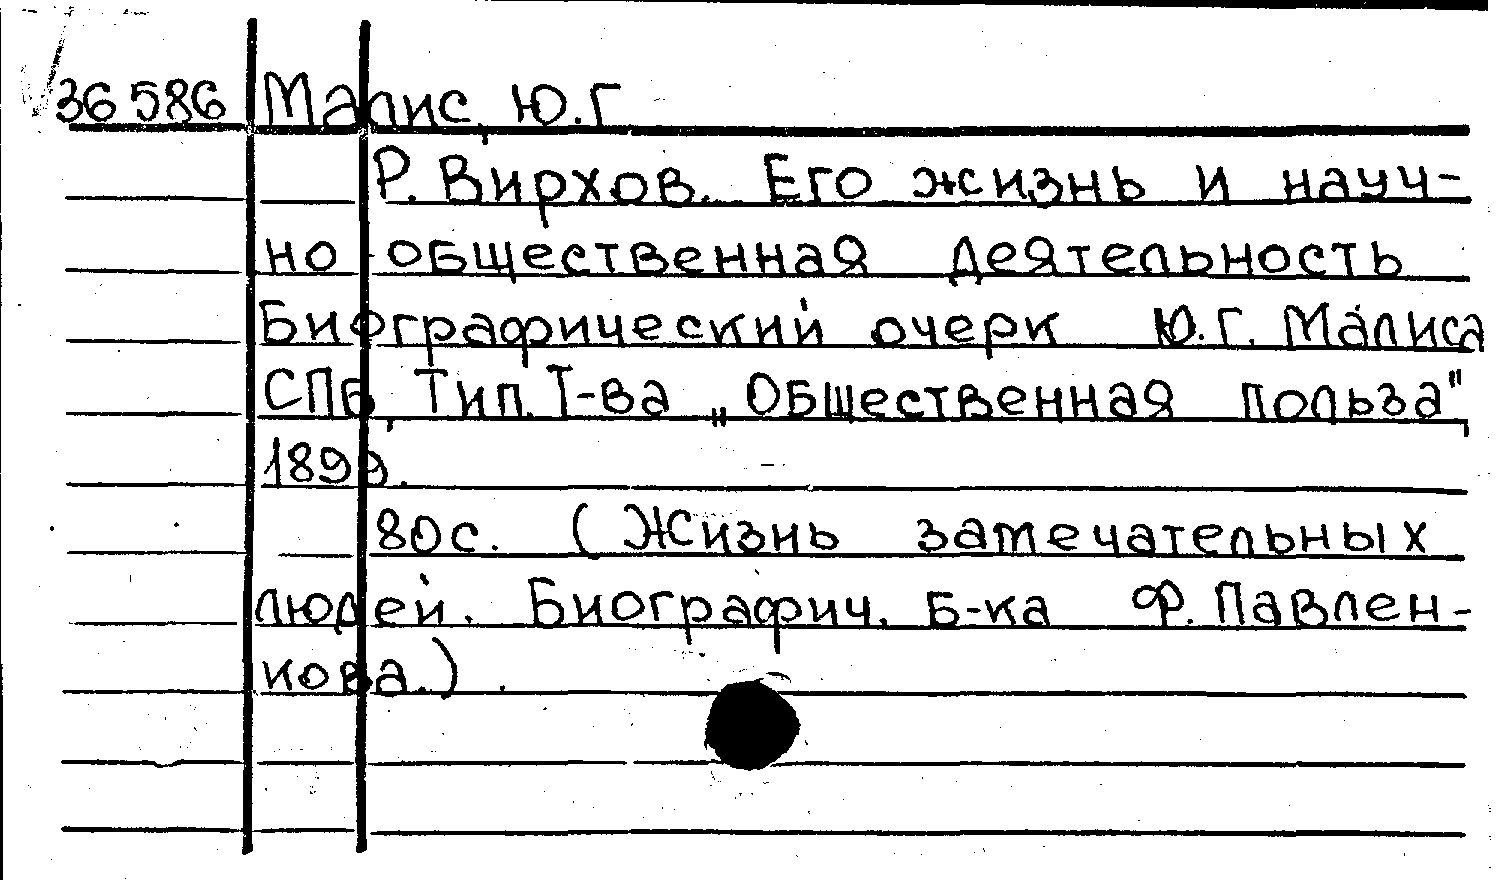 36 586 Малис, Ю.Г
Р. Вирхов. Его жизнь и науч-
но-общественная деятельность
Биографический очерк Ю.Г. Малиса
СПб, Тип. Т-ва „Общественная польза",
1899.
80с. (Жизнь замечательных
людей. Биографич. Б-ка Ф. Павлен-
кова.)